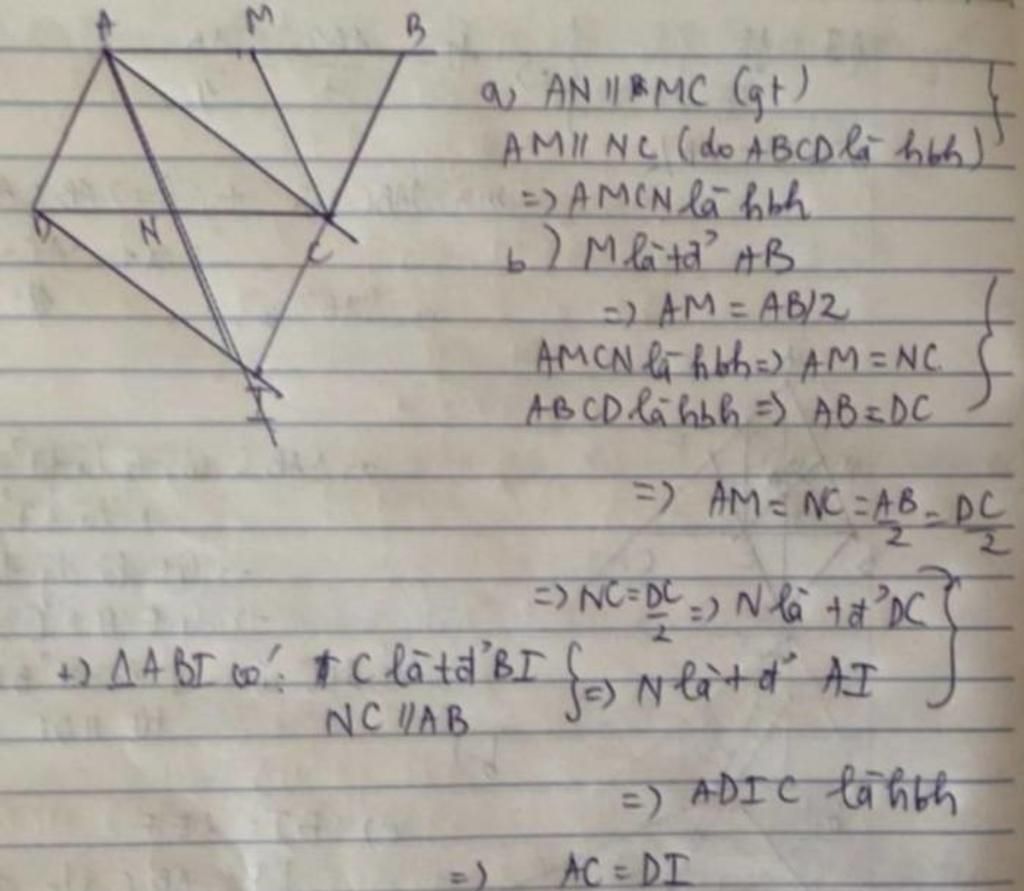 A M B
D N C
I
a) AN // MC (gt)
AM // NC (do ABCD là hbh)
=> AMCN là hbh
b) M là tđ' AB
=> AM = AB/2
AMCN là hbh => AM = NC
ABCD là hbh => AB = DC
=> AM = NC = AB/2 = DC/2
=> NC = DC/2 => N là tđ' DC
+) ΔABI có: C là tđ' BI => N là tđ' AI
NC // AB
=> ADIC là hbh
=> AC = DI